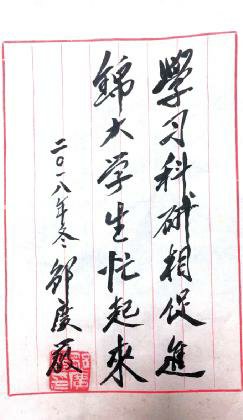 學习科研相促進
錦大学生忙起來
二〇一八年冬 邹廣严